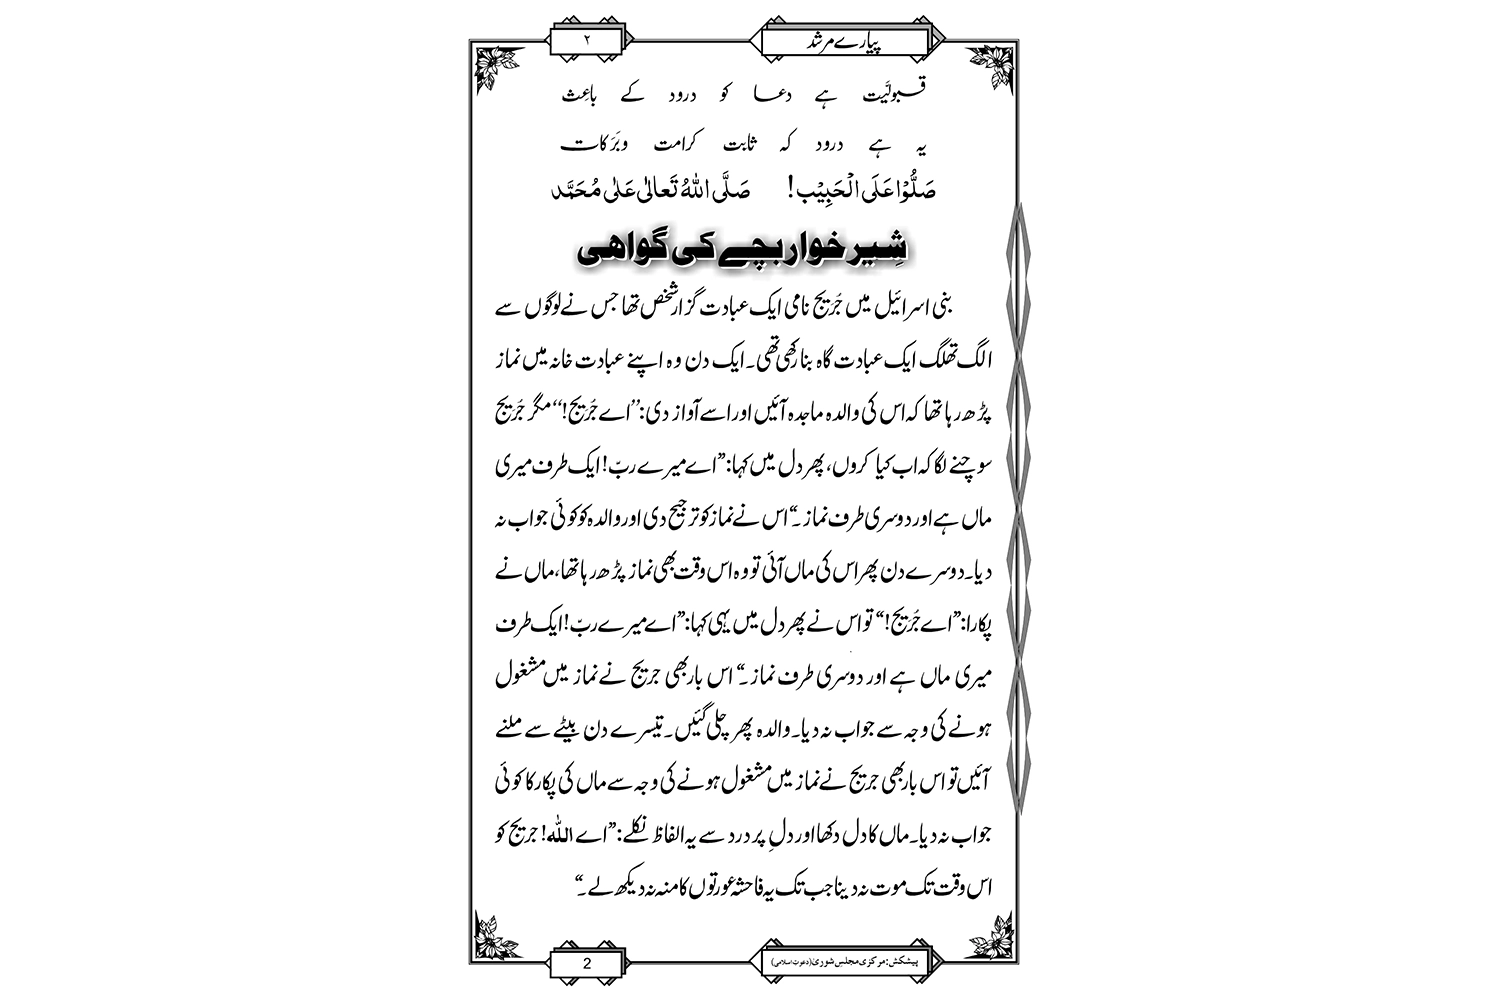 پیارے مرشد
۲
قبولیَّت ہے دعا کو درود کے باعِث
یہ ہے درود کہ ثابت کرامت وبَرَکات
صَلُّوْا عَلَی الْحَبِیْب! صَلَّی اللّٰهُ تَعَالٰی عَلٰی مُحَمَّد
شِیر خوار بچے کی گواھی
بنی اسرائیل میں جُرَیج نامی ایک عبادت گزار شخص تھا جس نے لوگوں سے
الگ تھلگ ایک عبادت گاہ بنا رکھی تھی۔ ایک دن وہ اپنے عبادت خانہ میں نماز
پڑھ رہا تھا کہ اس کی والدہ ماجدہ آئیں اور اسے آواز دی: ’’اے جُرَیج!‘‘ مگر جُرَیج
سوچنے لگا کہ اب کیا کروں، پھر دل میں کہا: ”اے میرے ربّ! ایک طرف میری
ماں ہے اور دوسری طرف نماز۔“ اس نے نماز کو ترجیح دی اور والدہ کو کوئی جواب نہ
دیا۔ دوسرے دن پھر اس کی ماں آئی تو وہ اس وقت بھی نماز پڑھ رہا تھا، ماں نے
پکارا: ”اے جُرَیج!“ تو اس نے پھر دل میں یہی کہا: ”اے میرے ربّ! ایک طرف
میری ماں ہے اور دوسری طرف نماز۔“ اس بار بھی جریج نے نماز میں مشغول
ہونے کی وجہ سے جواب نہ دیا۔ والدہ پھر چلی گئیں۔ تیسرے دن بیٹے سے ملنے
آئیں تو اس بار بھی جریج نے نماز میں مشغول ہونے کی وجہ سے ماں کی پکار کا کوئی
جواب نہ دیا۔ ماں کا دل دکھا اور دلِ پر درد سے یہ الفاظ نکلے: ”اے اللّٰہ! جریج کو
اس وقت تک موت نہ دینا جب تک یہ فاحشہ عورتوں کا منہ نہ دیکھ لے۔“
پیشکش: مرکزی مجلسِ شوریٰ (دعوتِ اسلامی)
2